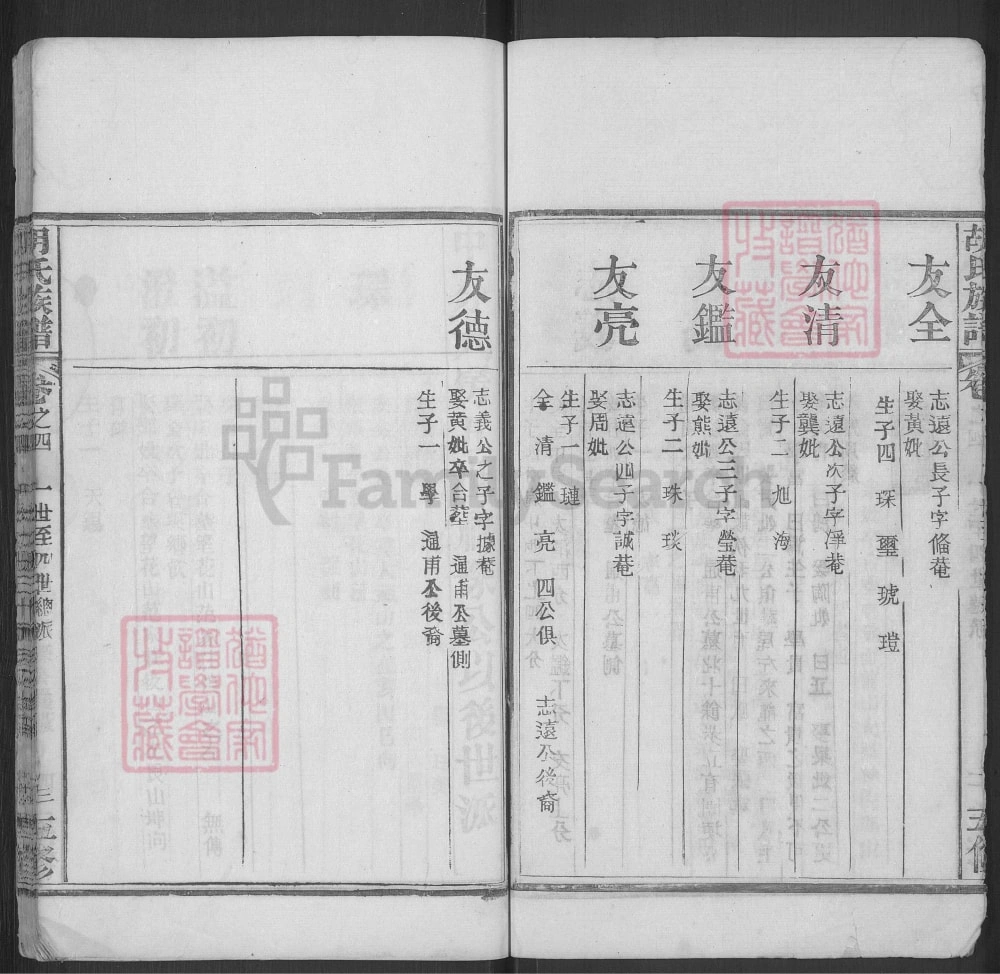 胡氏族譜
五修
友全
志遠公長子字脩菴
娶黃妣
生子四 琛 璽 琥 璒
友清
志遠公次子字淳菴
娶龔妣
生子二 旭 海
友鑑
志遠公三子字瑩菴
娶熊妣
生子二 珠 琰
友亮
志遠公四子字誠菴
娶周妣
生子一 璉
全 清 鑑 亮 四公俱 志遠公後裔
友德
志義公之子字據菴
娶黃妣卒合塟 通甫公墓側
生子一 學 通甫公後裔
胡氏族譜
卷之四 一世至九世總派
三
五修
FamilySearch